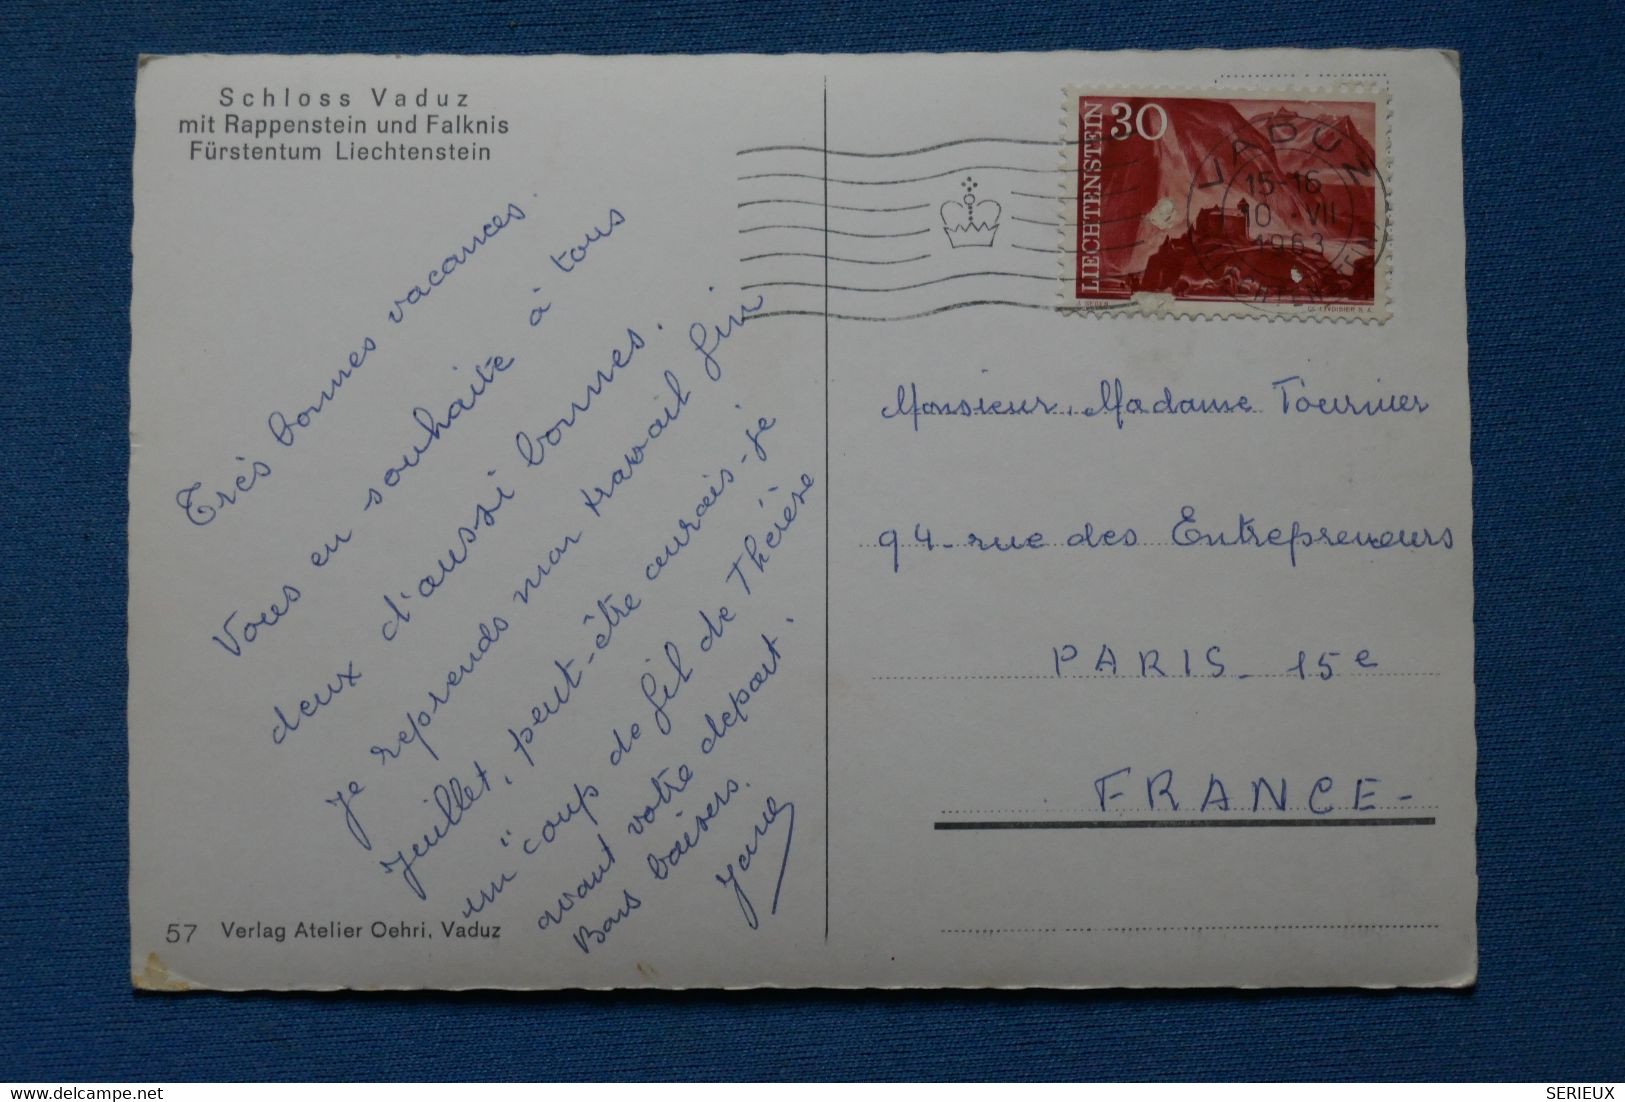 Schloss Vaduz
mit Rappenstein und Falknis
Fürstentum Liechtenstein
Très bonnes vacances.
Vous en souhaite à tous
deux d'aussi bonnes.
Je reprends mon travail fin
Juillet, peut-être aurais-je
un "coup de fil de Thérèse
avant votre départ.
Bons baisers.
57 Verlag Atelier Oehri, Vaduz
LIECHTENSTEIN
30
VADUZ
15-16
10.VII
1963
Monsieur, Madame Tournier
94-rue des Entrepreneurs
PARIS_ 15e
FRANCE-
SERIEUX